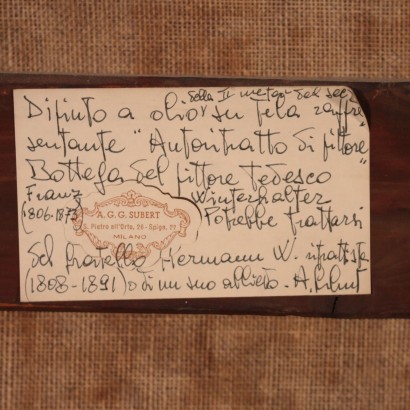 della II metà del sec.
Dipinto a olio su tela rappre
sentante "Autoritratto di pittore"
Bottega del pittore Tedesco
Franz Winterhalter
(1806-1873 Potrebbe trattarsi
A. G. G. SUBERT
S. Pietro all'Orto, 26 - Spiga, 22
MILANO
del fratello Hermann W. ritrattista
(1808-1891) o di un suo allievo - A. Subert